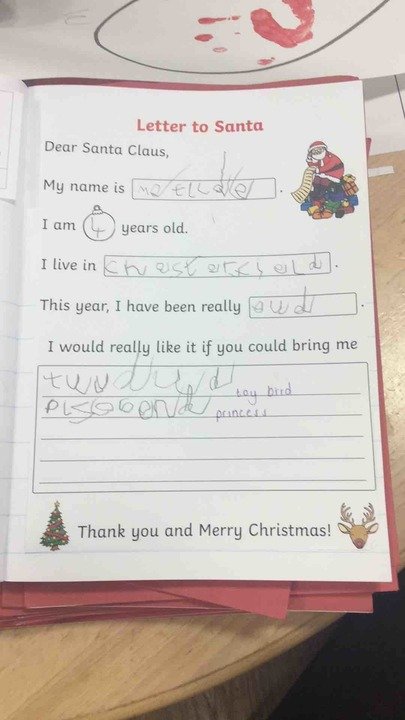 Letter to Santa
Dear Santa Claus,
My name is
I am 4 years old.
I live in
This year, I have been really
I would really like it if you could bring me
toy bird
princess
Thank you and Merry Christmas!